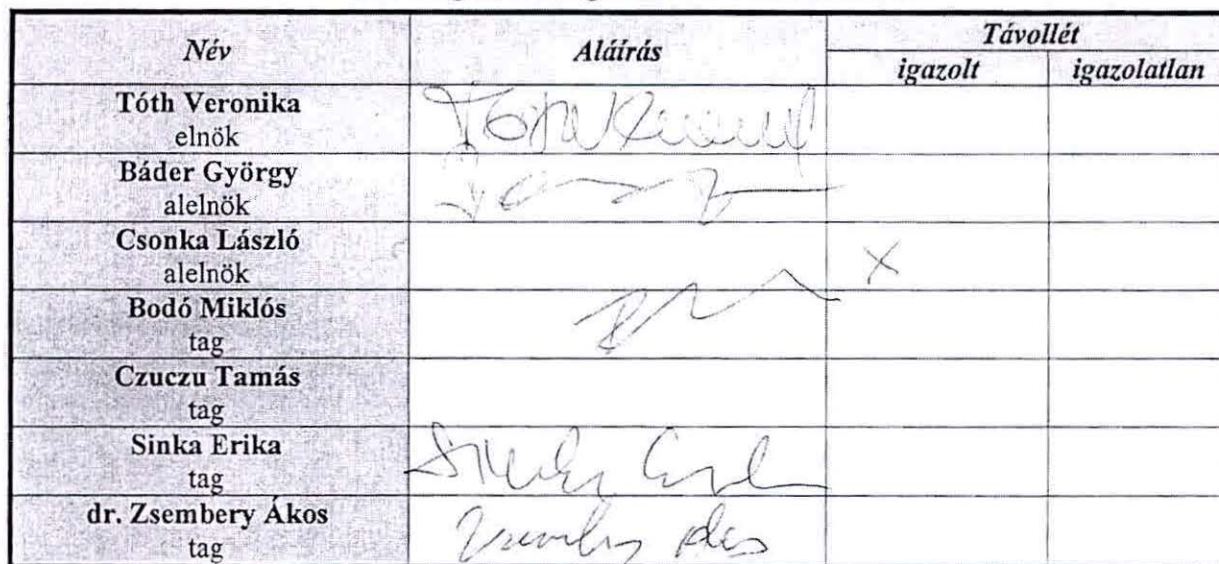 Név Aláírás Távollét
igazolt igazolatlan
Tóth Veronika
elnök
Báder György
alelnök
Csonka László
alelnök
X
Bodó Miklós
tag
Czuczu Tamás
tag
Sinka Erika
tag
dr. Zsembery Ákos
tag